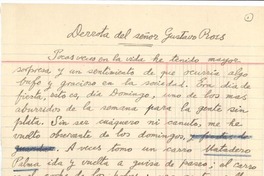 Derrota del señor Gustavo Rocs
Pocas veces en la vida he tenido mayor
sorpresa y un sentimiento de que ocurría algo
bufo y gracioso en la sociedad. Era día de
fiesta, esto es, día Domingo, uno de los mas
aburridos de la semana para la gente sin
plata. Sin ser caígueno ni canuto, me he
vuelto observante de los domingos,
A veces tomo un carro Matadero
Palma ida y vuelta a guisa de paseo; al carro